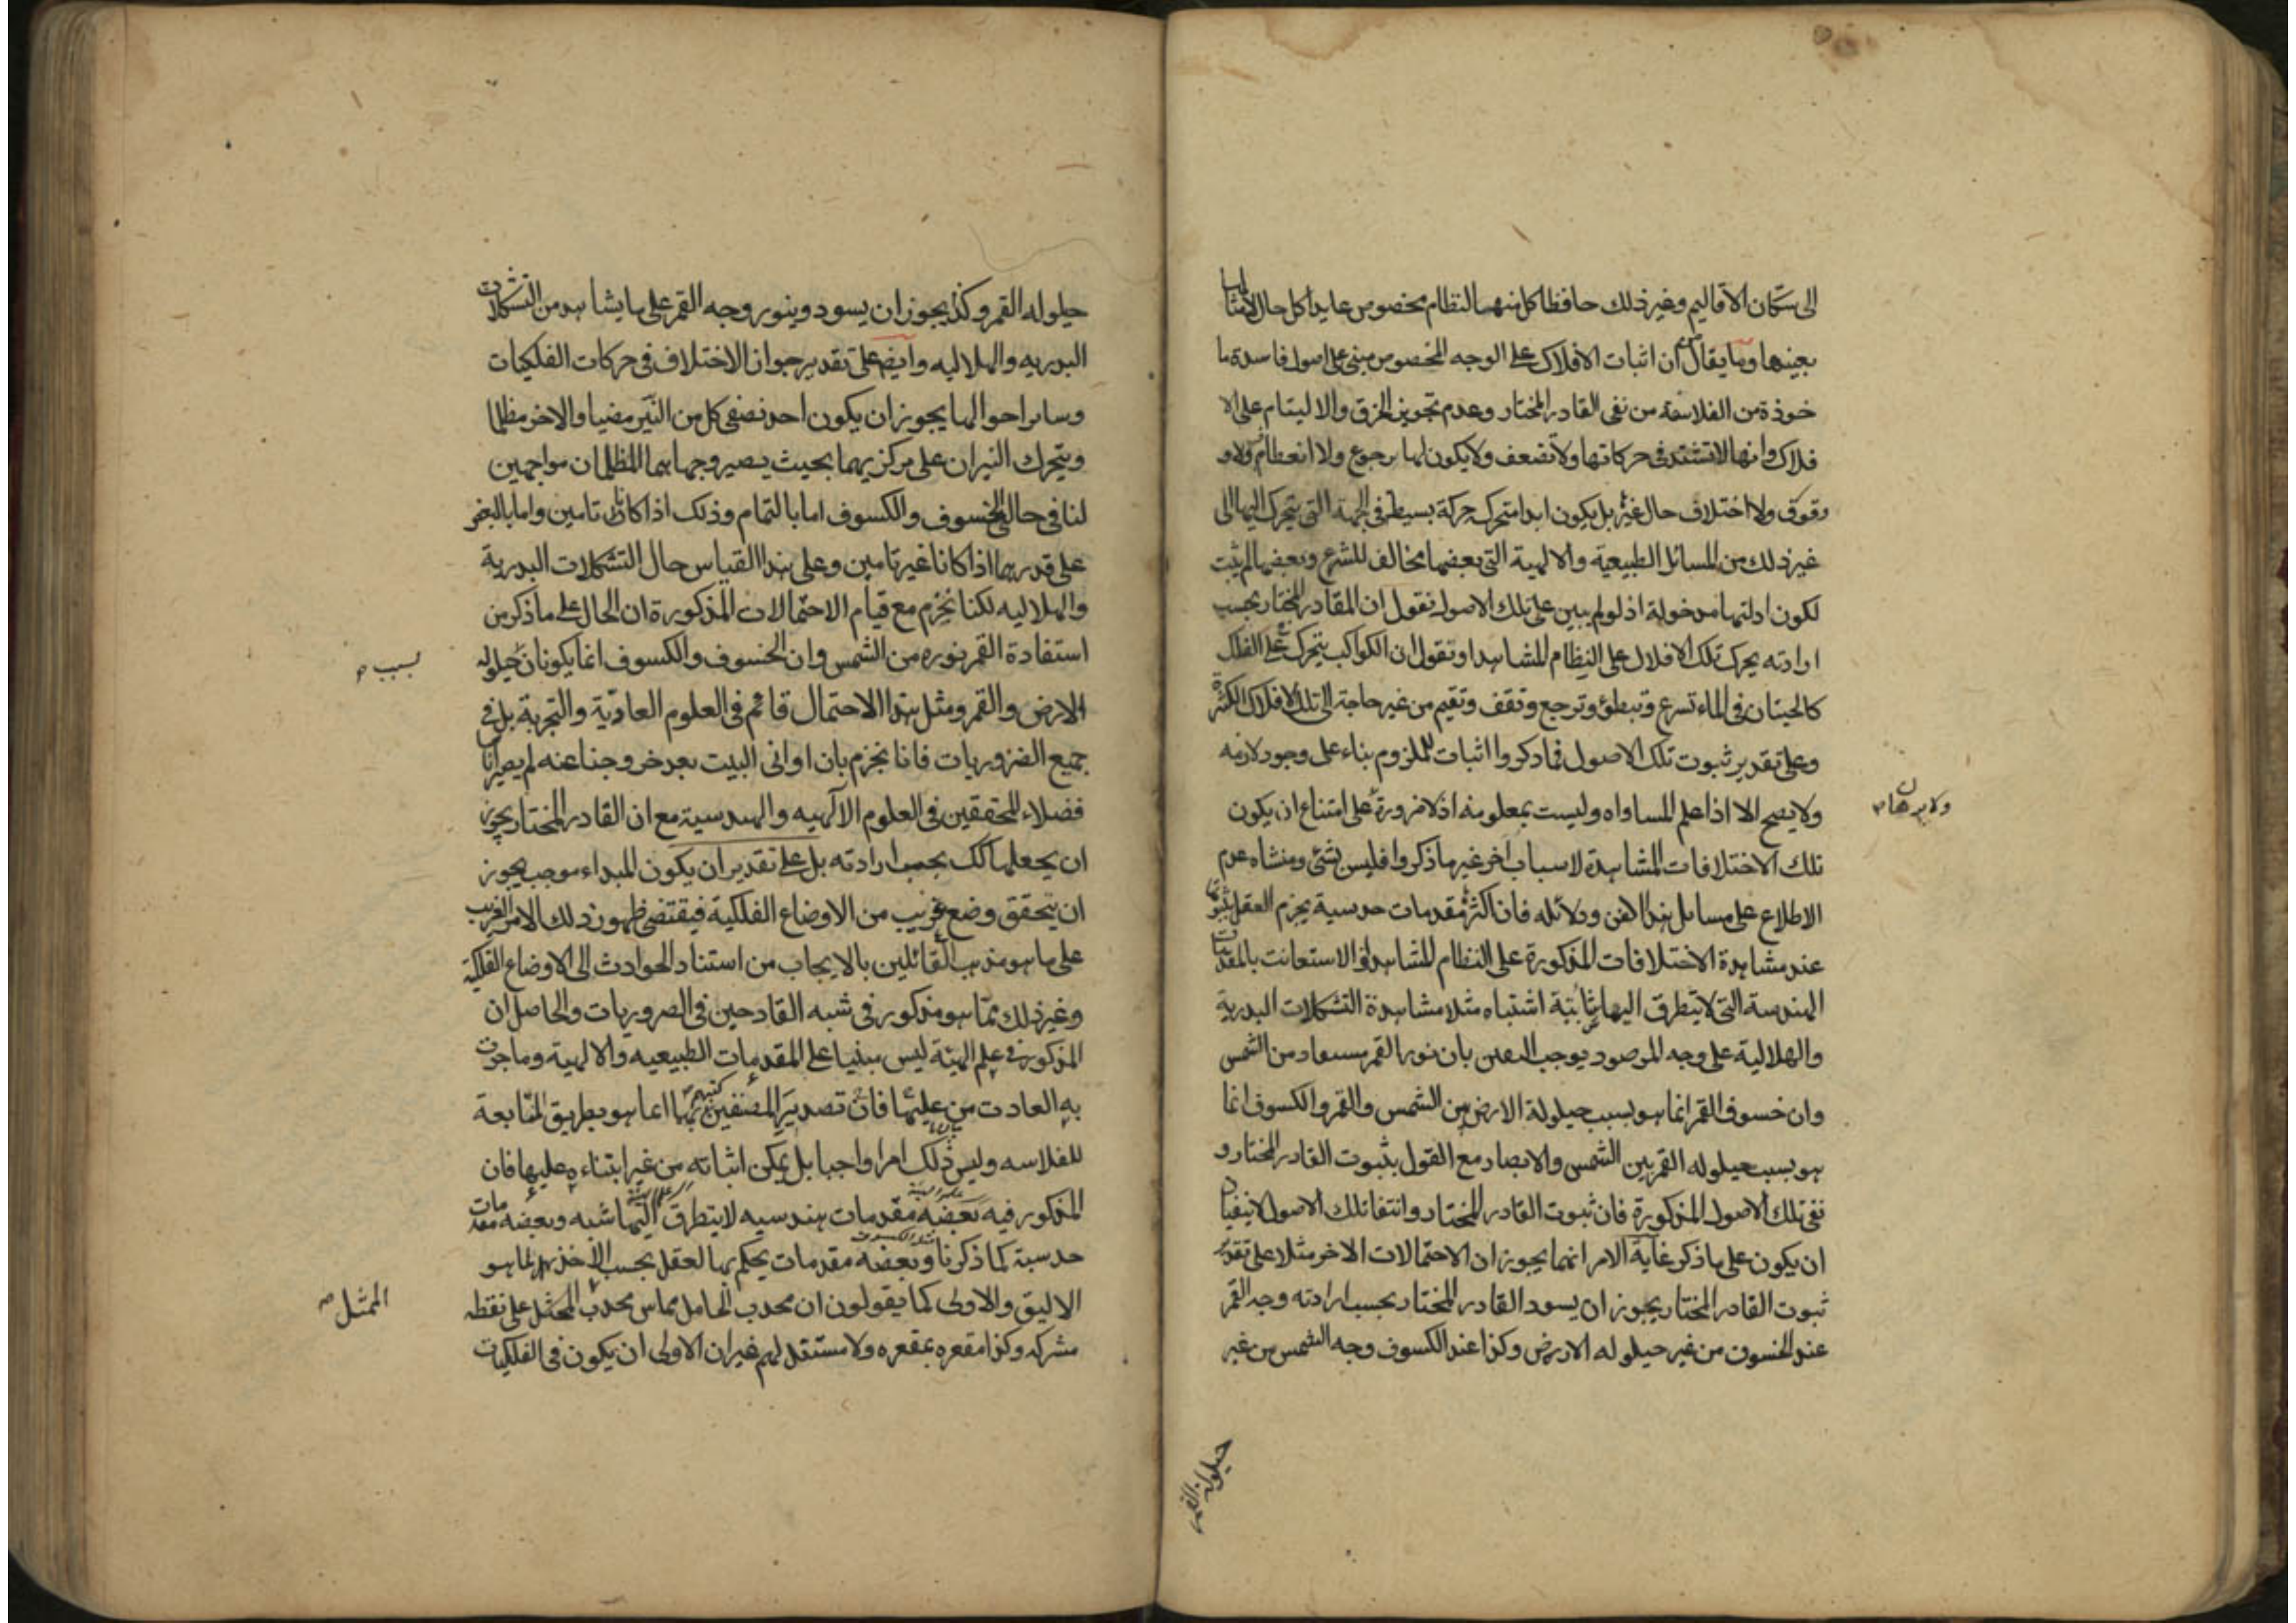 الى سكان الاقاليم وغير ذلك حافظا كل منها لنظام مخصوص عايدا كل حال لامثالها
بعينها وما يقال من ان اثبات الافلاك على الوجه المخصوص مبني على اصول فاسدة ما
خوذة من الفلاسفة من نفي القادر المختار وعدم تجويز الخرق والاليتام على الا
فلاك وانها لا تشتد في حركاتها ولا تضعف ولا يكون لها رجوع ولا انعطاف ولا و
قوف ولا اختلاف حال غيره بل يكون ابدا متحركة حركة بسيطة في الجهة التي يتحرك اليها الى
غير ذلك من المسائل الطبيعية والالهية التي بعضها مخالف للشرع وبعضها لم يثبت
لكون ادلتها مدخولة اذ لو لم يبين على تلك الاصول نقول ان القادر المختار بحسب
ارادته يحرك تلك الافلاك على النظام المشاهد او نقول ان الكواكب يتحرك على الفلك
كالحيتان في الماء تسرع وتبطؤ وترجع وتقف وتقيم من غير حاجة الى تلك الافلاك الكثيرة
وعلى تقدير ثبوت تلك الاصول فما ذكروا اثبات للملزوم بناء على وجود لازمه
ولا يصح الا اذا علم المساواه وليست بمعلومه اذ لا ضرورة على امتناع ان يكون
ولا برهان صح
تلك الاختلافات المشاهدة لاسباب اخر غير ما ذكروا فليس بشئ ومنشاه عدم
الاطلاع على مسايل هذا الفن ودلائله فان اكثره مقدمات حدسية يجزم العقل بثبوتها
عند مشاهدة الاختلافات المذكورة على النظام المشاهد او الاستعانت بالمقدمات
الهندسة التي لا يتطرق اليها شائبة اشتباه مثلا مشاهدة التشكلات البدرية
والهلالية على وجه المرصود يوجب اليقين بان نور القمر مستفاد من الشمس
وان خسوف القمر انما هو بسبب حيلولة الارض بين الشمس والقمر والكسوف انما
هو بسبب حيلوله القمر بين الشمس والابصار مع القول بثبوت القادر المختار و
نفي تلك الاصول المذكورة فان ثبوت القادر المختار وانتفا تلك الاصول لا ينفيان
ان يكون على ما ذكر غاية الامر انهما يجوزان الاحتمالات الاخر مثلا على تقدير
ثبوت القادر المختار يجوز ان يسود القادر المختار بحسب ارادته وجه القمر
عند الخسوف من غير حيلوله الارض وكذا عند الكسوف وجه الشمس من غير
حيلوله القمر وكذا يجوز ان يسود وينور وجه القمر على ما يشاهد من التشكلات
البدريه والهلاليه وايضا على تقدير جواز الاختلاف في حركات الفلكيات
وسائر احوالها يجوز ان يكون احد نصفي كل من النيرين مضيا والاخر مظلما
ويتحرك النيران على مركزيهما بحيث يصير وجهاهما المظلمان مواجهين
لنا في حالتي الخسوف والكسوف اما بالتمام وذلك اذا كانا تامين واما بالبعض
على قدرهما اذا كانا غير تامين وعلى هذا القياس حال التشكلات البدرية
والهلاليه لكنا نجزم مع قيام الاحتمالات المذكورة ان الحال على ما ذكر من
استفادة القمر نوره من الشمس وان الخسوف والكسوف انما يكونان حيلوله
بسبب صح
الارض والقمر ومثل هذا الاحتمال قائم في العلوم العاديّة والتجربة بل في
جميع الضروريات فانا نجزم بان اواني البيت بعد خروجنا عنه لم يصر اناسا
فضلاء محققين في العلوم الالهيه والهندسية مع ان القادر المختار يجوز
ان يجعلها كك بحسب ارادته بل على تقدير ان يكون المبداء موجب يجوز
ان يتحقق وضع غريب من الاوضاع الفلكية فيقتضي ظهور ذلك الامر الغريب
على ما هو مذهب القائلين بالايجاب من استناد الحوادث الى الاوضاع الفلكية
وغير ذلك ممّا هو مذكور في شبه القادحين في الضروريات والحاصل ان
المذكور في علم الهيئة ليس مبنيا على المقدمات الطبيعيه والالهية وما جرت
به العادت من تصدير المصنفين كتبهم بها انما هو بطريق المتابعة
للفلاسه وليس ذلك امرا واجبا بل يمكن اثباته من غير ابتناءه عليها فان
المذكور فيه بعضه مقدمات هندسيه لا يتطرق اليها شبه وبعضه مقدمات
حدسية كما ذكرنا وبعضه مقدمات يحكم بها العقل بحسب الاخذ بما هو
الاليق والاولى كما يقولون ان محدب الحامل يماس محدب الممثل على نقطه
الممثل صح
مشركه وكذا مقعره بمقعره ولا مستند لهم غير ان الاولى ان يكون في الفلكيات